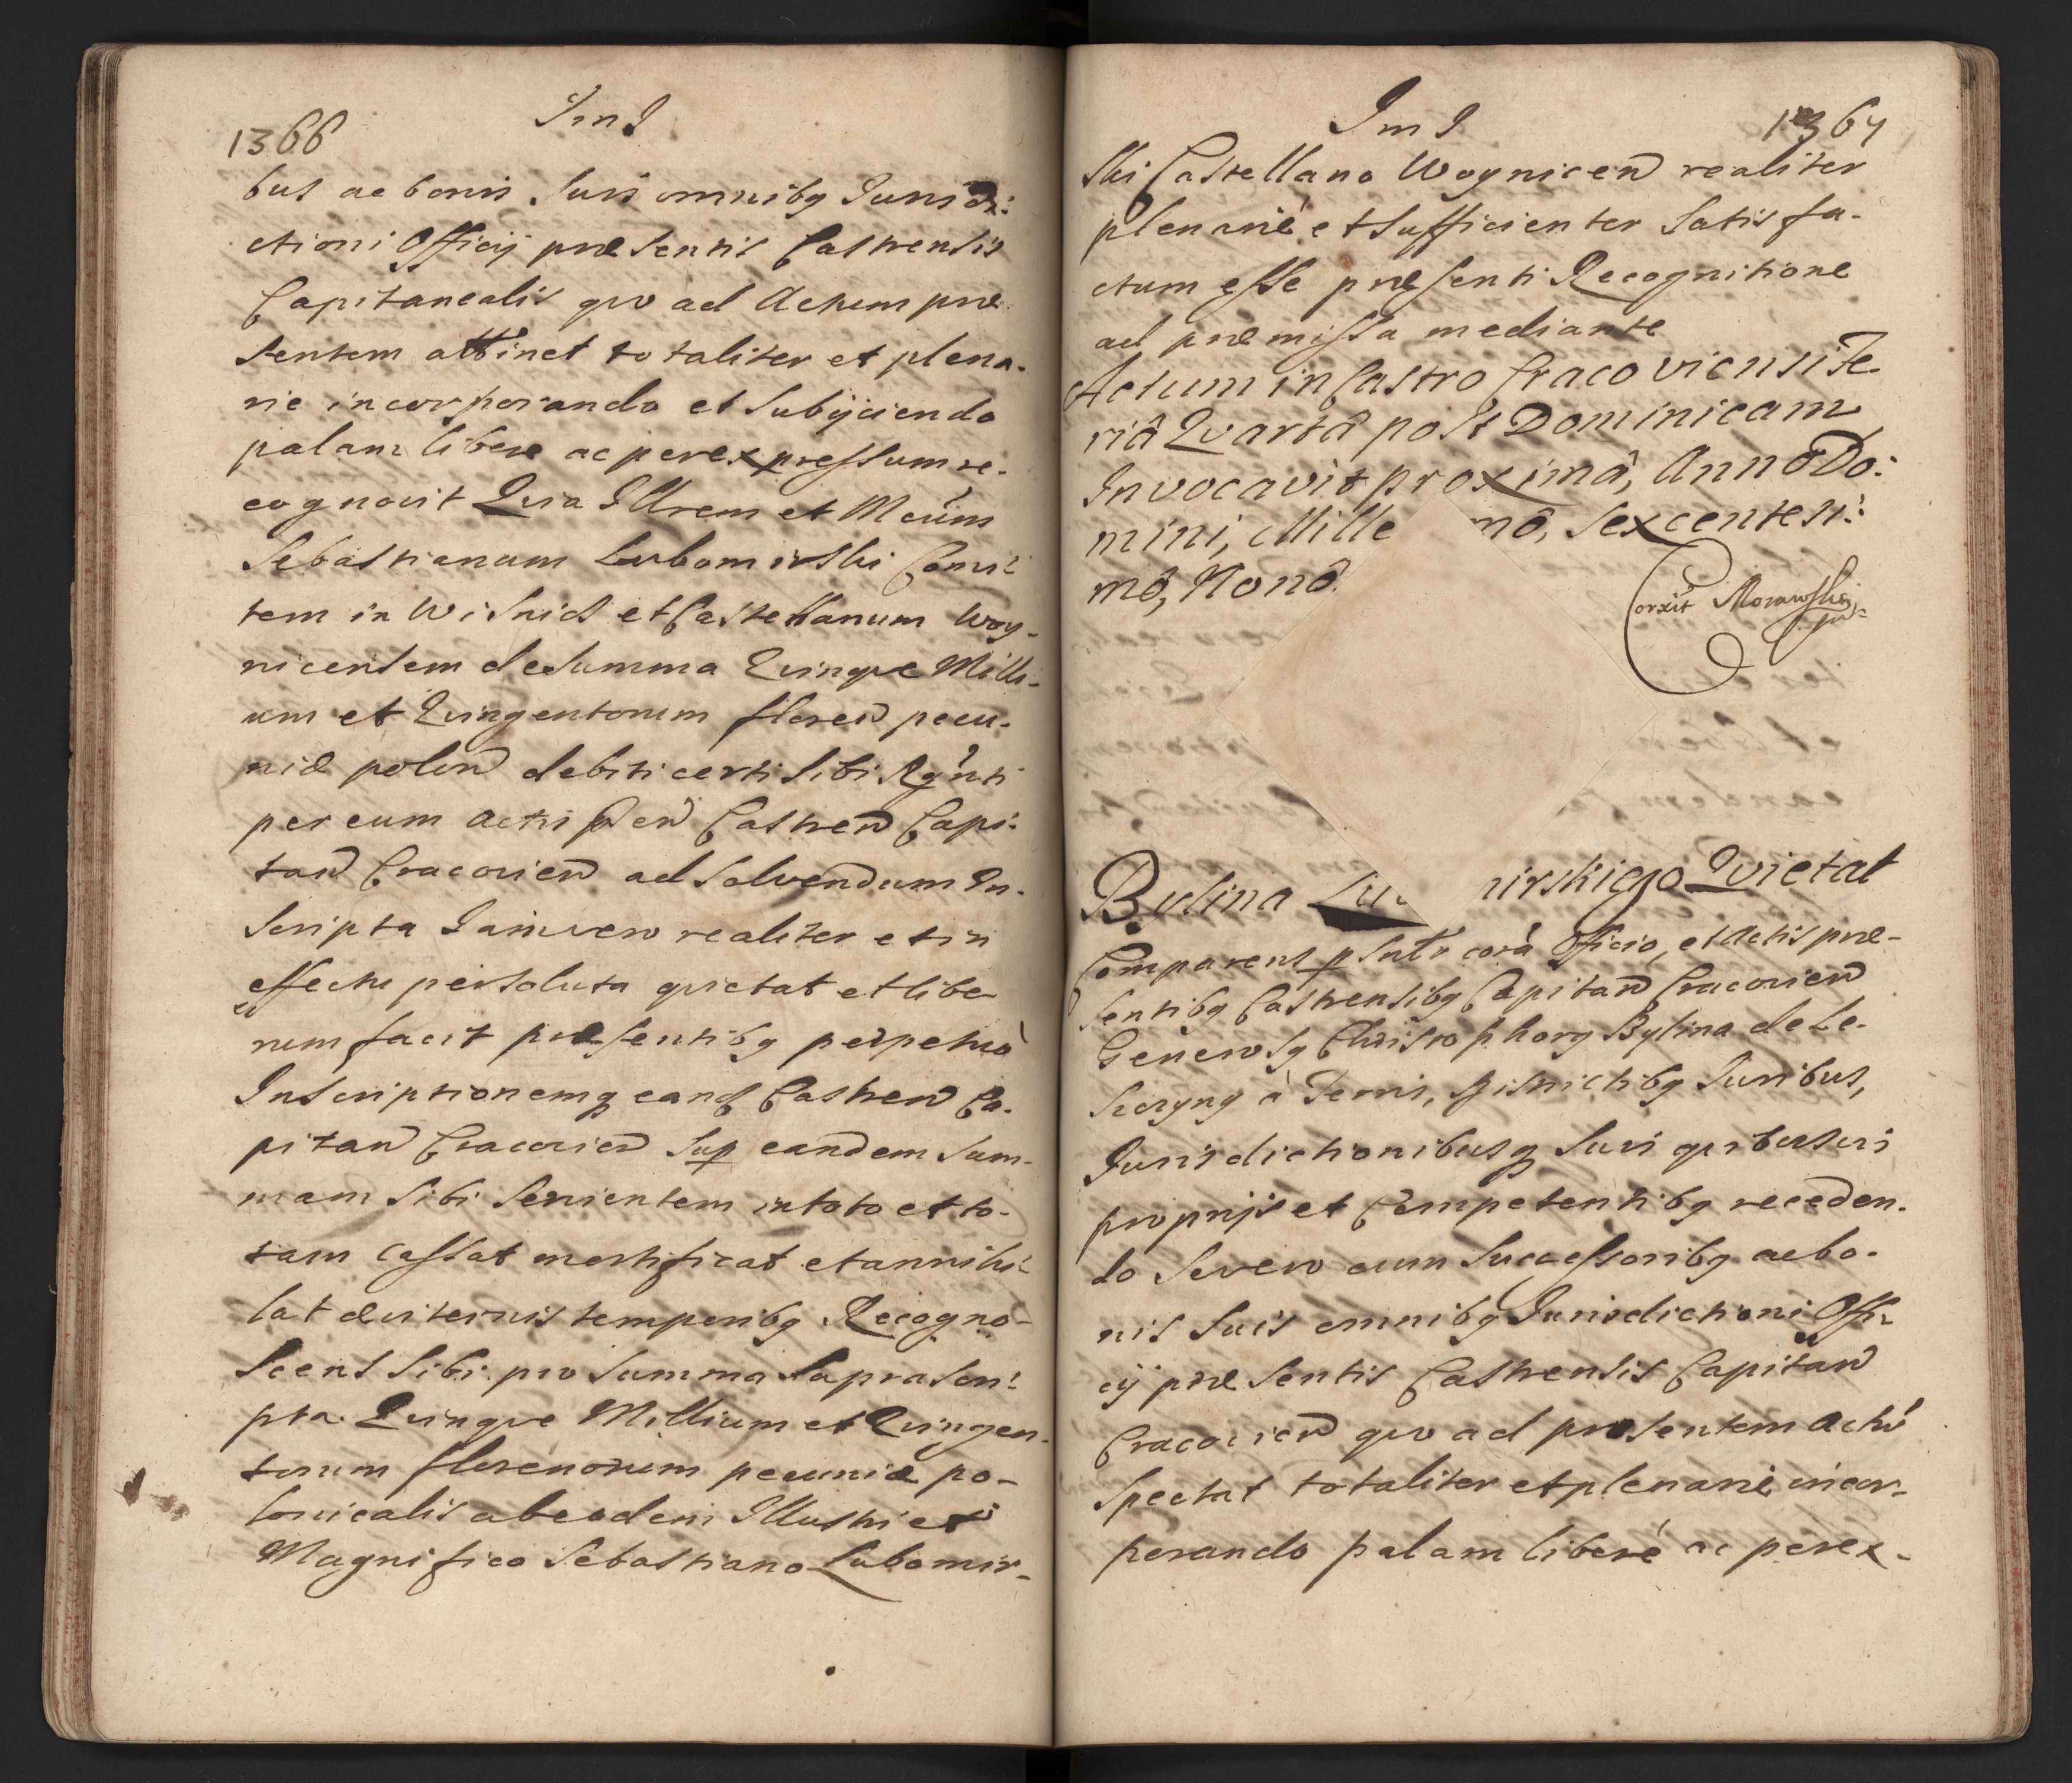 1366
Im I
bus ac bonis suis omnibq Jurisdi:
ctioni Officij præsentis Castrensis
Capitanealis qvo ad Actum præ
sentem attinet totaliter et plena-
rie incorporando et subijciendo
palam libere ac per expressum re-
cognovit Qvia Illrem et Mcum
Sebastianum Lubomirski Comi:
tem in Wisnicz et Castellanum Woy-
nicensem de summa Qvinqve Milli-
um et Qvingentorum floren pecu-
niæ polon debiti certi sibi Rgnti
per eum Actis præn Castren Capi-
tan Cracovien ad solvendum In-
scripta Jamvero realiter et in
effectu persoluta qvietat et libe
rum facit præsentibq perpetuò
Inscriptionemq eand Castren Ca-
pitan Cracovien sup eandem sum-
mam sibi servientem in toto et to-
tam cassat mortificat et annihi-
lat æviternis temporibq Recogno-
scens sibi pro summa suprascri:
pta Qvinqve Millium et Qvingen-
torum florenorum pecuniæ po-
lonicalis ab eodem Illustri et
Magnifico Sebastiano Lubomir-
Im I
1367
ski Castellano Woynicen realiter
plenarie et sufficienter satisfa-
ctum esse præsenti Recognitione
ad præmissa mediante
Actum in Castro Cracoviensi Fe-
riâ Qvartâ post Dominicam
Invocavit proximâ, Annô Do:
mini, Mille mô, sexcentesi:
mô, Nonô.
Corxit Morawski
Bylina Lu mirskiego Qvietat
Comparens psnlr corà Officio, et Actis præ-
sentibq Castrensibq Capitan Cracovien
Generosq Christophorq Bylina de Le-
szczyny à Terris, Districtibq Juribus,
Jurisdictionibusq suis qvibusvis
proprijs et Competentibq receden-
do se vero cum Successoribq ac bo-
nis suis omnibq Jurisdictioni Offi-
cij præsentis Castrensis Capitan
Cracovien qvo ad præsentem Actû
spectat totaliter et plenarie incor-
porando palam liberè ac per ex-